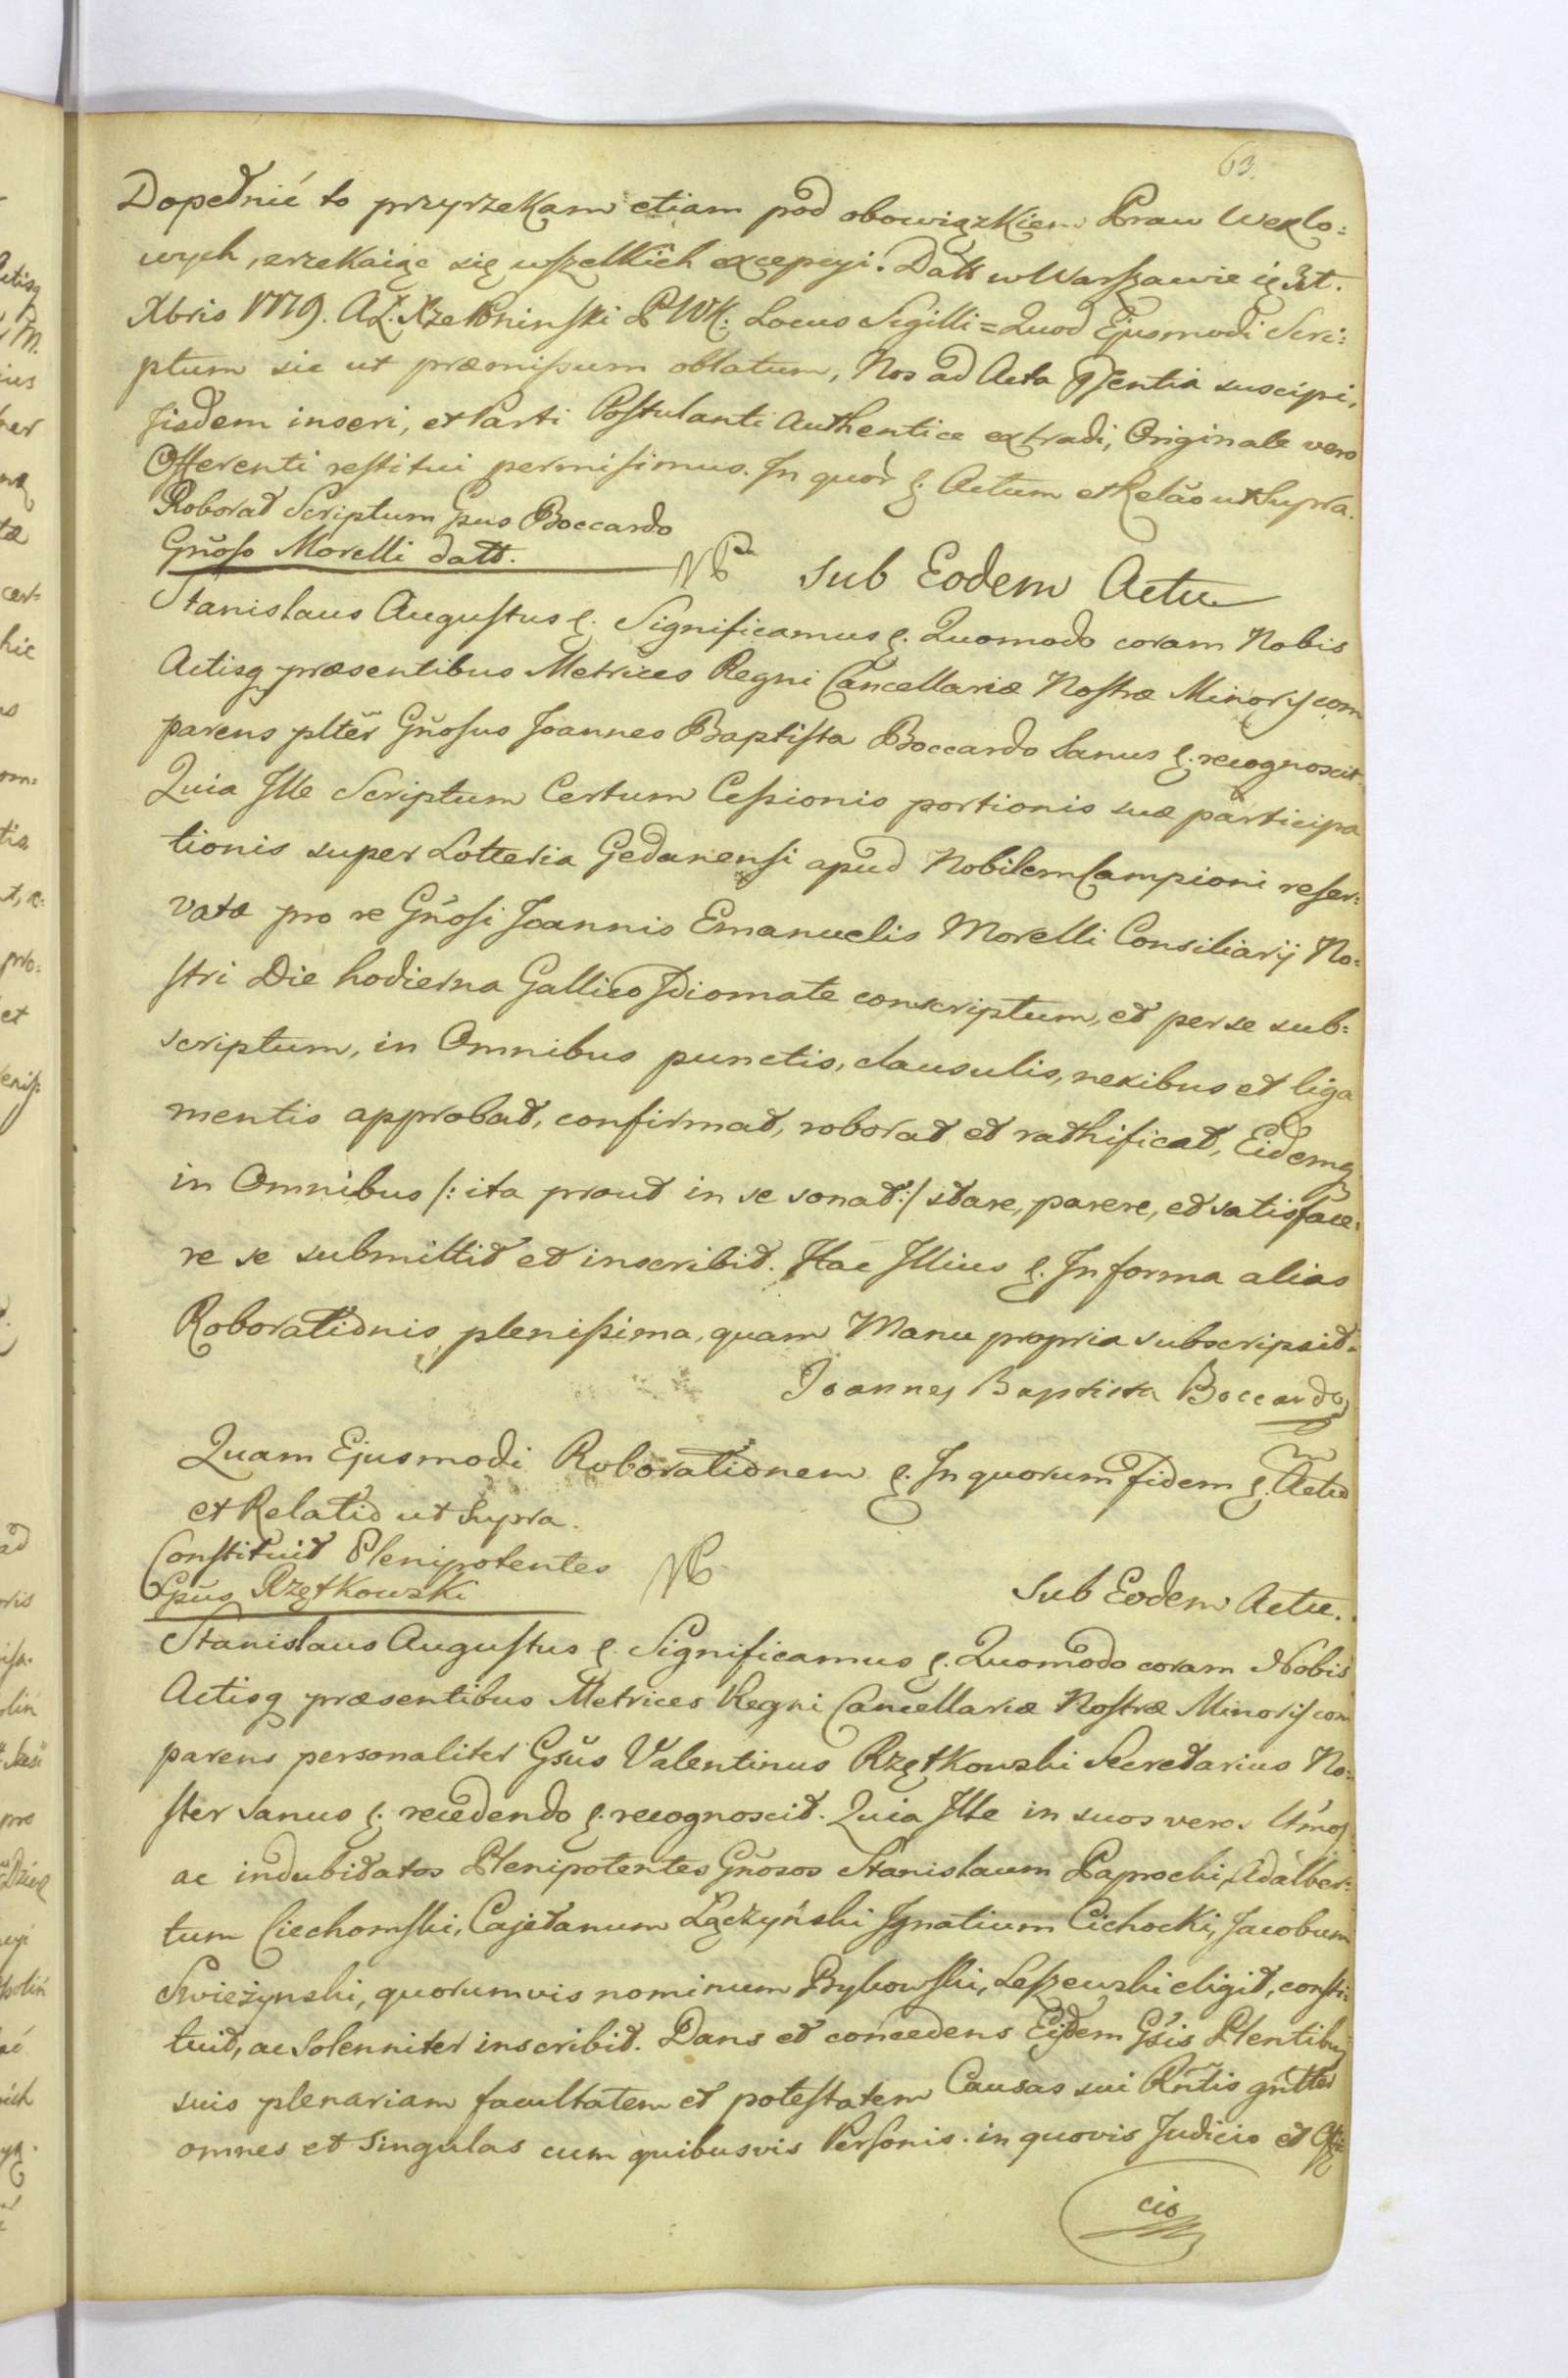 63.
Dopełnić to przyrzekam etiam pod obowiązkiem Praw Wexlo=
wych, zrzekaiąc się wszelkich excepcyi. Datt w Warszawie
Xbris 1779. Poninski P WK: Locus Sigilli = Quod Ejusmodi Scri:
ptum sic ut præmissum oblatum, Nos ad Acta suscipi,
Jisdem inseri, et Parti Postulanti Authentice extradi, Originale vero
Offerenti restitui permisimus. In quor ę. Actum et Relāo ut Supra.
Roborat Scriptum Gnus Boccardo
Gnoso Morelli datt.
Sub Eodem Actu
Stanislaus Augustus ę. Significamus ę. Quomodo coram Nobis
Actisq præsentibus Metrices Regni Cancellariæ Nostræ Minoris com
parens plter Gnosus Joannes Baptista Boccardo Sanus ę. recognoscit
Quia Ille Scriptum Certum Cessionis portionis suæ participa
tionis super Lotteria Gedanensi apud Nobilem Campioni reser:
vatæ pro re Gnosi Joannis Emanuelis Morelli Consiliarij No:
stri Die hodierna Gallico Idiomate conscriptum, et per se sub:
scriptum, in Omnibus punctis, clausulis, nexibus et liga
mentis approbat, confirmat, roborat et rathificat, Eidemq
in Omnibus /: ita prout in se sonat :/ stare, parere, et satisface:
re se submittit et inscribit. Hac Illius ę. In forma alias
Roborationis plenissima, quam Manu propria subscripsit.
Joannes Baptista Boccardo
Quam Ejusmodi Roborationem ę. In quorum Fidem ę. Actu
et Relatio ut Supra.
Constituit Plenipotentes
Gnus Rzętkowski
Sub Eodem Actu.
Stanislaus Augustus ę. Significamus ę. Quomodo coram Nobis
Actisq præsentibus Metrices Regni Cancellariæ Nostræ Minoris com
parens personaliter Gsus Valentinus Rzętkowski Secretarius No:
ster Sanus ę. recedendo ę. recognoscit. Quia Ille in suos veros
ac indubitatos Plenipotentes Gnosos Stanislaum Paprocki, Adalber:
tum Ciechomski, Cajetanum Łączyński Ignatium Cichocki, Jacobum
Swieżynski, quorumvis nominum Bybowski, Leszewski eligit, consti:
tuit, ac Solenniter inscribit. Dans et concedens Eisdem Gsis Plentibus
suis plenariam facultatem et potestatem Causas sui Rntis gnlter
omnes et Singulas cum quibusvis Personis in quovis Judicio et Offi
cio